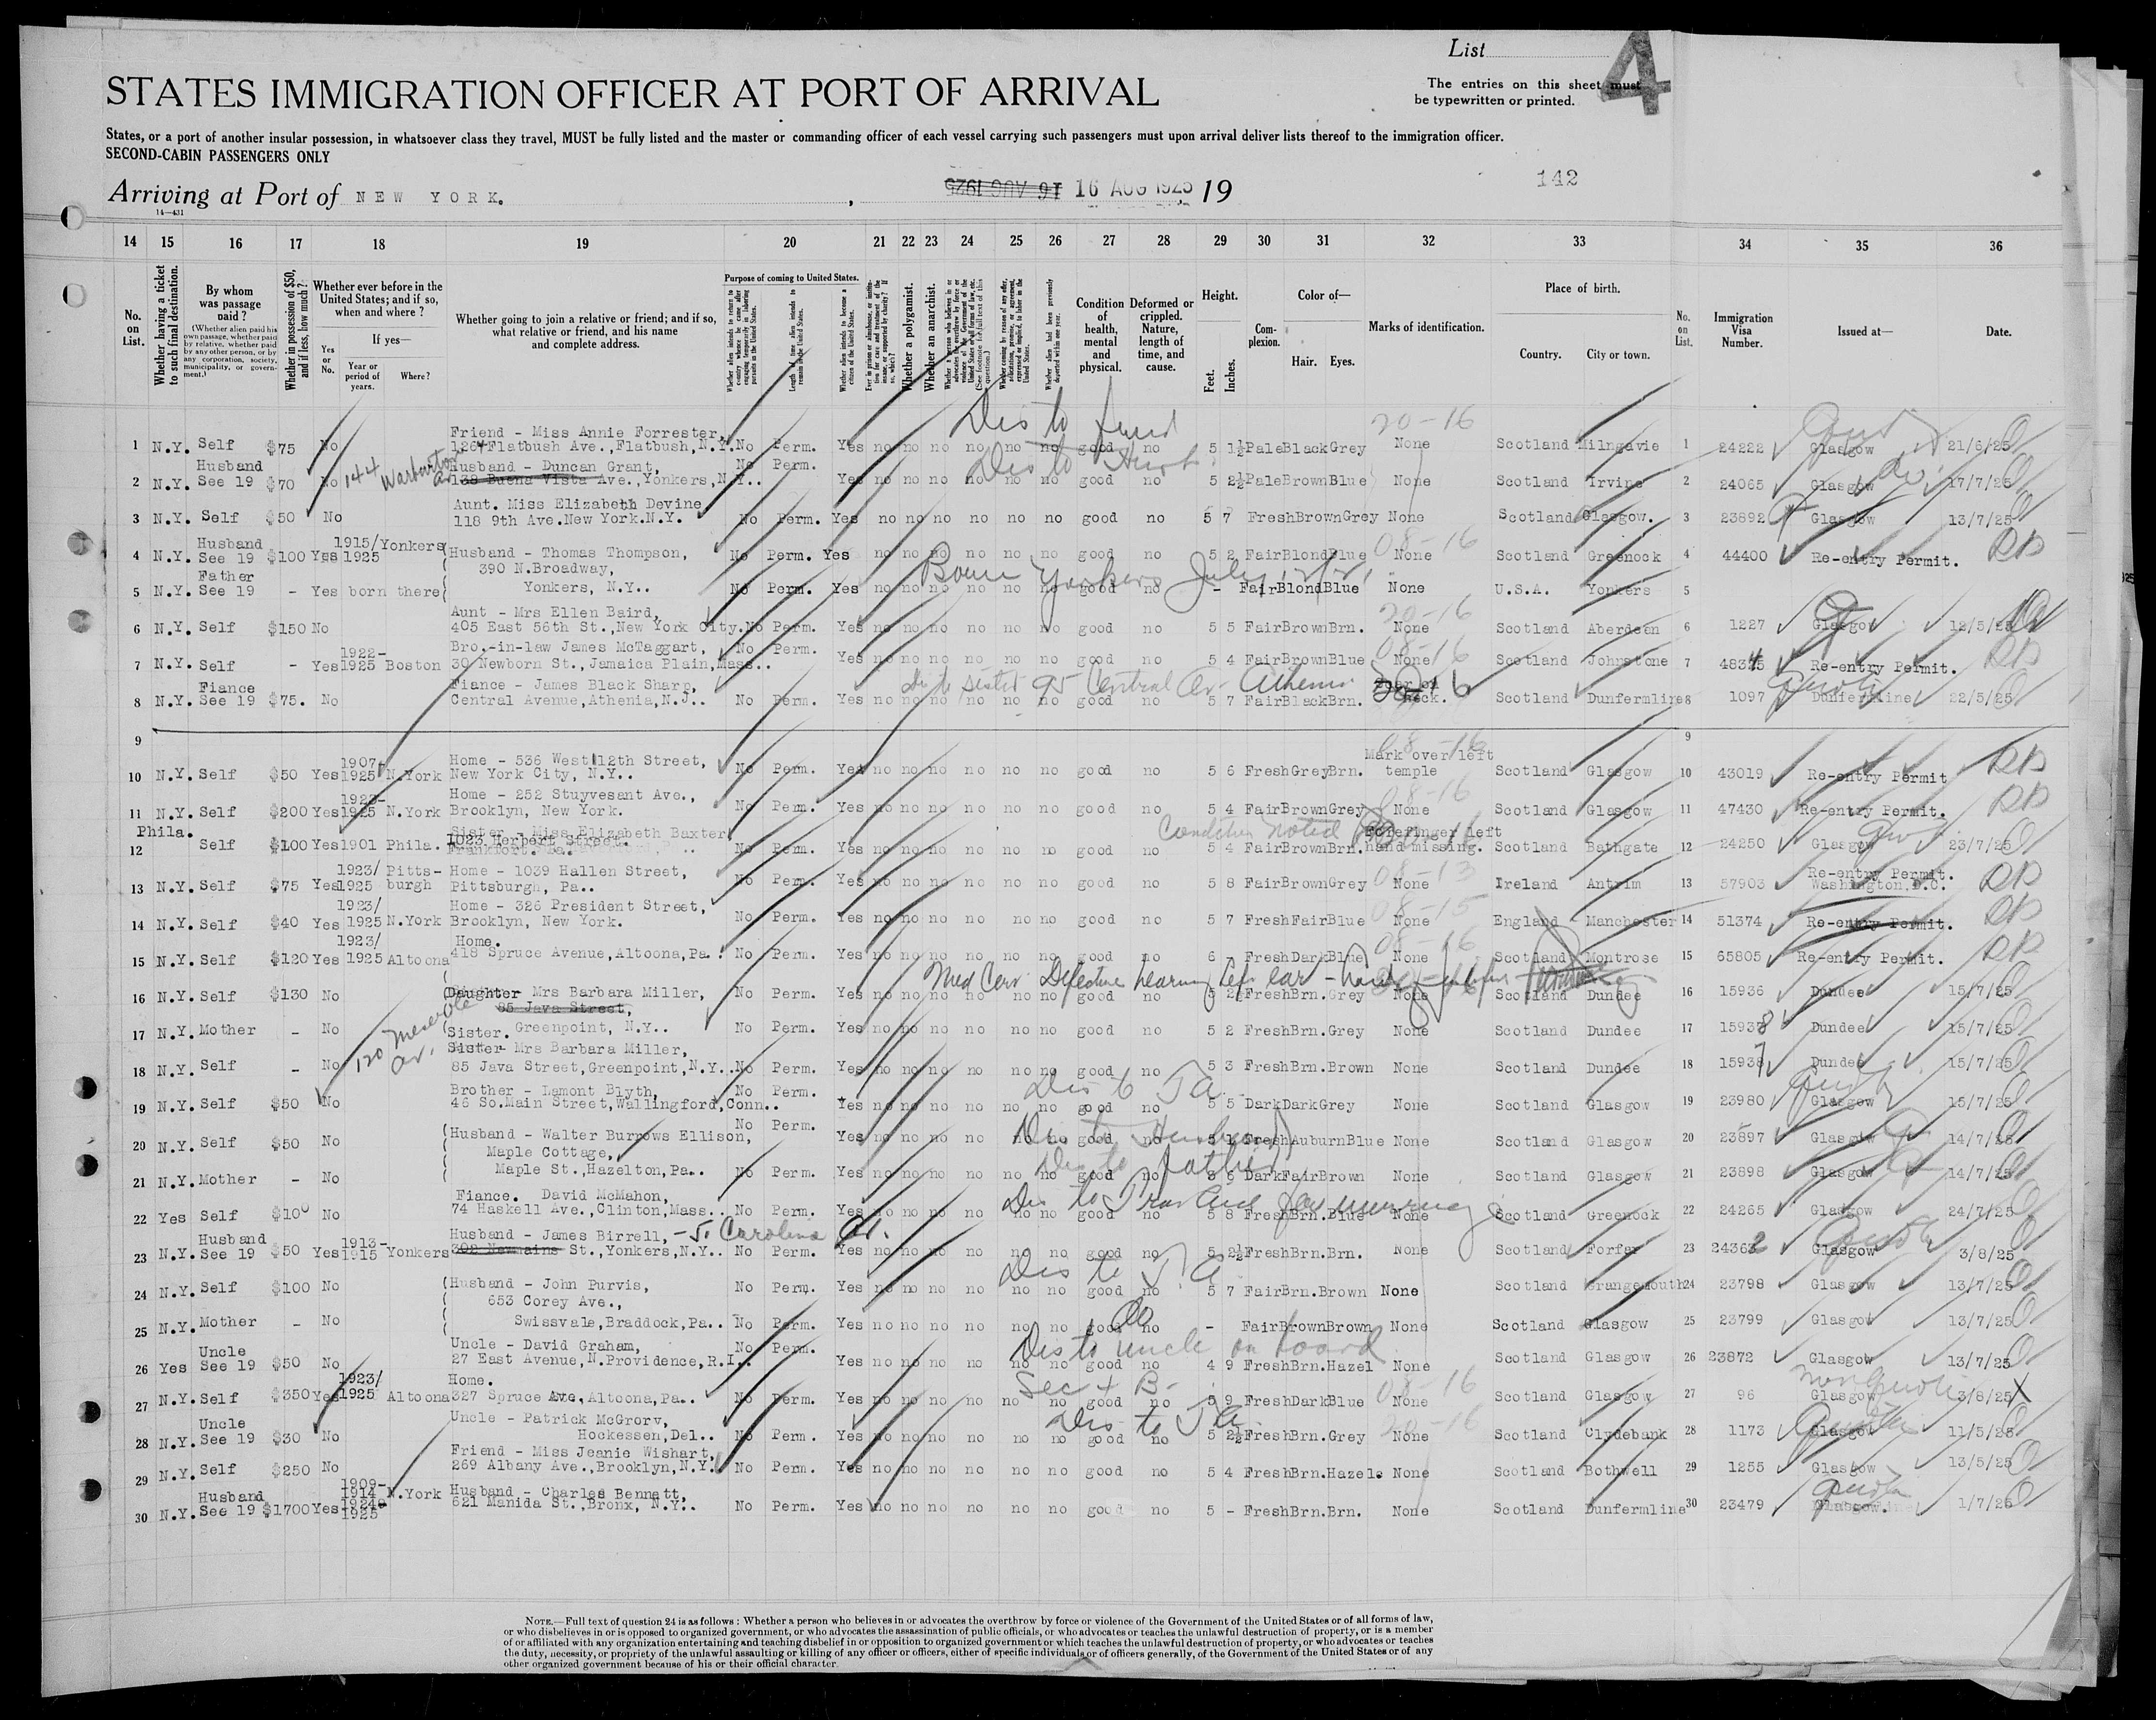 List 4
The entries on this sheet must
be typewritten or printed.
STATES IMMIGRATION OFFICER AT PORT OF ARRIVAL
States, or a port of another insular possession, in whatsoever class they travel, MUST be fully listed and the master or commanding officer of each vessel carrying such passengers must upon arrival deliver lists thereof to the immigration officer.
SECOND-CABIN PASSENGERS ONLY
142
Arriving at Port of NEW YORK. , 16 AUG 1925 , 19
14—431
14 15 16 17 18 19 20 21 22 23 24 25 26 27 28 29 30 31 32 33 34 35 36
No. on List.
Whether having a ticket to such final destination.
By whom was passage paid?
(Whether alien paid his own passage, whether paid by relative, whether paid by any other person, or by any corporation, society, municipality, or government.)
Whether in possession of $50, and if less, how much?
Whether ever before in the United States; and if so, when and where?
Yes or No.
If yes—
Year or period of years.
Where?
Whether going to join a relative or friend; and if so, what relative or friend, and his name and complete address.
Purpose of coming to United States.
Length of time alien intends to remain in the United States.
Whether alien intends to become a citizen of the United States.
Whether a polygamist.
Whether an anarchist.
Condition of health, mental and physical.
Deformed or crippled. Nature, length of time, and cause.
Height.
Feet. Inches.
Complexion.
Color of—
Hair. Eyes.
Marks of identification.
Place of birth.
Country. City or town.
No. on List.
Immigration Visa Number.
Issued at—
Date.
1 N.Y. Self $75 No Friend - Miss Annie Forrester, 1264 Flatbush Ave., Flatbush, N.Y. No Perm. Yes no no no no no no good no 5 1½ Pale Black Grey None Scotland Milngavie 1 24222 Glasgow 21/6/25
2 N.Y. Husband See 19 $70 No 144 Warburton Av Husband - Duncan Grant, 138 Buena Vista Ave., Yonkers, N.Y.. No Perm. Yes no no no no no no good no 5 2½ Pale Brown Blue None Scotland Irvine 2 24065 Glasgow 17/7/25
3 N.Y. Self $50 No Aunt. Miss Elizabeth Devine 118 9th Ave. New York. N.Y. No Perm. Yes no no no no no no good no 5 7 Fresh Brown Grey None Scotland Glasgow. 3 23892 Glasgow 13/7/25
4 N.Y. Husband See 19 $100 Yes 1915/1925 Yonkers Husband - Thomas Thompson, 390 N.Broadway, No Perm. Yes no no no no no no good no 5 2 Fair Blond Blue None Scotland Greenock 4 44400 Re-entry Permit.
5 N.Y. Father See 19 - Yes born there Yonkers, N.Y.. No Perm. Yes no no no no no no good no - Fair Blond Blue None U.S.A. Yonkers 5
6 N.Y. Self $150 No Aunt - Mrs Ellen Baird, 405 East 56th St., New York City. No Perm. Yes no no no no no no good no 5 5 Fair Brown Brn. None Scotland Aberdeen 6 1227 Glasgow 12/5/25
7 N.Y. Self - Yes 1922-1925 Boston Bro.-in-law James McTaggart, 30 Newborn St., Jamaica Plain, Mass.. No Perm. Yes no no no no no no good no 5 4 Fair Brown Blue None Scotland Johnstone 7 Re-entry Permit.
8 N.Y. Fiance See 19 $75. No Fiance - James Black Sharp, Central Avenue, Athenia, N.J.. No Perm. Yes no no no no no no good no 5 7 Fair Black Brn. Scotland Dunfermline 8 1097 Dunfermline 22/5/25
9 9
10 N.Y. Self $50 Yes 1907-1925 N.York Home - 536 West 112th Street, New York City, N.Y.. No Perm. Yes no no no no no no good no 5 6 Fresh Grey Brn. Mark over left temple Scotland Glasgow 10 43019 Re-entry Permit
11 N.Y. Self $200 Yes 1923-1925 N.York Home - 252 Stuyvesant Ave., Brooklyn, New York. No Perm. Yes no no no no no no good no 5 4 Fair Brown Grey None Scotland Glasgow 11 47430 Re-entry Permit.
12 Phila. Self $100 Yes 1901 Phila. Sister - Miss Elizabeth Baxter 1023 Herbert Street. Frankfort. Pa. No Perm. Yes no no no no no no good no 5 4 Fair Brown Brn. Forefinger left hand missing. Scotland Bathgate 12 24250 Glasgow 23/7/25
13 N.Y. Self $75 Yes 1923/1925 Pittsburgh Home - 1039 Hallen Street, Pittsburgh, Pa.. No Perm. Yes no no no no no no good no 5 8 Fair Brown Grey None Ireland Antrim 13 57903 Re-entry Permit. Washington, D.C.
14 N.Y. Self $40 Yes 1923/1925 N.York Home - 326 President Street, Brooklyn, New York. No Perm. Yes no no no no no no good no 5 7 Fresh Fair Blue None England - Manchester 14 51374 Re-entry Permit.
15 N.Y. Self $120 Yes 1923/1925 Altoona Home. 418 Spruce Avenue, Altoona, Pa.. No Perm. Yes no no no no no no good no 6 - Fresh Dark Blue None Scotland Montrose 15 65805 Re-entry Permit.
16 N.Y. Self $130 No Daughter - Mrs Barbara Miller, 85 Java Street, No Perm. Yes no no no no no no good no 5 2½ Fresh Brn. Grey None Scotland Dundee 16 15936 Dundee 15/7/25
17 N.Y. Mother - No Sister. Greenpoint, N.Y.. No Perm. Yes no no no no no no good no 5 2 Fresh Brn. Grey None Scotland Dundee 17 15938 Dundee 15/7/25
18 N.Y. Self - No Sister - Mrs Barbara Miller, 85 Java Street, Greenpoint, N.Y.. No Perm. Yes no no no no no no good no 5 3 Fresh Brn. Brown None Scotland Dundee 18 15937 Dundee 15/7/25
19 N.Y. Self $50 No Brother - Lamont Blyth, 46 So.Main Street, Wallingford, Conn.. No Perm. Yes no no no no no no good no 5 5 Dark Dark Grey None Scotland Glasgow 19 23980 Glasgow 15/7/25
20 N.Y. Self $50 No Husband - Walter Burrows Ellison, Maple Cottage, No Perm. Yes no no no no no no good no Fresh Auburn Blue None Scotland Glasgow 20 23897 Glasgow 14/7/25
21 N.Y. Mother - No Maple St., Hazelton, Pa.. No Perm. Yes no no no no no no good no Dark Fair Brown None Scotland Glasgow 21 23898 Glasgow 14/7/25
22 Yes Self $100 No Fiance. David McMahon, 74 Haskell Ave., Clinton, Mass.. No Perm. Yes no no no no no no good no 5 8 Fresh Brn. Blue None Scotland Greenock 22 24265 Glasgow 24/7/25
23 N.Y. Husband See 19 $50 Yes 1913-1915 Yonkers Husband - James Birrell, St., Yonkers, N.Y.. No Perm. Yes no no no no no no good no 5 2½ Fresh Brn. Brn. None Scotland Forfar 23 24362 Glasgow 3/8/25
24 N.Y. Self $100 No Husband - John Purvis, 653 Corey Ave., No Perm. Yes no no no no no no good no 5 7 Fair Brn. Brown None Scotland Grangemouth 24 23798 Glasgow 13/7/25
25 N.Y. Mother - No Swissvale, Braddock, Pa.. No Perm. Yes no no no no no no good no - Fair Brown Brown None Scotland Glasgow 25 23799 Glasgow 13/7/25
26 Yes Uncle See 19 $50 No Uncle - David Graham, 27 East Avenue, N.Providence, R.I.. No Perm. Yes no no no no no no good no 4 9 Fresh Brn. Hazel None Scotland Glasgow 26 23872 Glasgow 13/7/25
27 N.Y. Self $350 Yes 1923/1925 Altoona Home. 327 Spruce Ave, Altoona, Pa.. No Perm. Yes no no no no no no good no 5 9 Fresh Dark Blue None Scotland Glasgow 27 96 Glasgow 3/8/25
28 N.Y. Uncle See 19 $30 No Uncle - Patrick McGrory, Hockessen, Del.. No Perm. Yes no no no no no no good no 5 2½ Fresh Brn. Grey None Scotland Clydebank 28 1173 Glasgow 11/5/25
29 N.Y. Self $250 No Friend - Miss Jeanie Wishart, 269 Albany Ave., Brooklyn, N.Y. No Perm. Yes no no no no no no good no 5 4 Fresh Brn. Hazel. None Scotland Bothwell 29 1255 Glasgow 13/5/25
30 N.Y. Husband See 19 $1700 Yes 1909-1914 1924-1925 N.York Husband - Charles Bennett, 621 Manida St., Bronx, N.Y.. No Perm. Yes no no no no no no good no 5 - Fresh Brn. Brn. None Scotland Dunfermline 30 23479 Glasgow. 1/7/25
NOTE.—Full text of question 24 is as follows: Whether a person who believes in or advocates the overthrow by force or violence of the Government of the United States or of all forms of law,
or who disbelieves in or is opposed to organized government, or who advocates the assassination of public officials, or who advocates or teaches the unlawful destruction of property, or is a member
of or affiliated with any organization entertaining and teaching disbelief in or opposition to organized government or which teaches the unlawful destruction of property, or who advocates or teaches
the duty, necessity, or propriety of the unlawful assaulting or killing of any officer or officers, either of specific individuals or of officers generally, of the Government of the United States or of any
other organized government because of his or their official character.